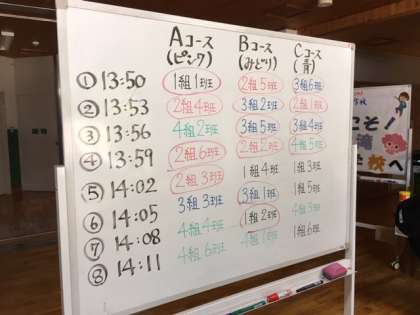 Aコース Bコース Cコース
(ピンク) (みどり) (青)
① 13:50 1組1班 2組5班 3組6班
② 13:53 2組4班 3組2班 2組1班
③ 13:56 4組2班 3組5班 3組4班
④ 13:59 2組6班 2組2班 4組5班
⑤ 14:02 2組3班 1組4班 1組3班
⑥ 14:05 3組3班 3組1班 1組5班
⑦ 14:08 4組4班 1組2班 4組3班
⑧ 14:11 4組6班 4組1班 1組6班
こそ!
校へ